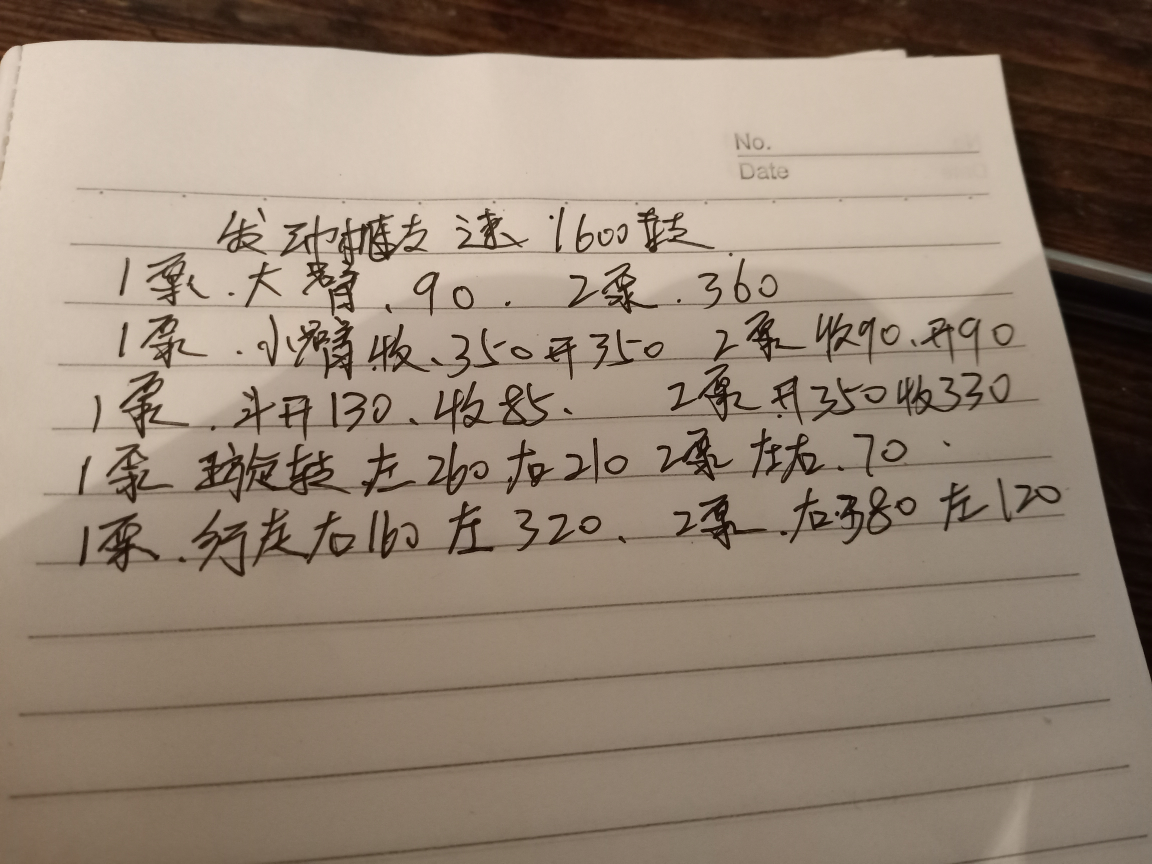 No.
Date
发动机转速 1600转
1泵.大臂、90. 2泵.360
1泵.小臂收、350开350 2泵收90、开90
1泵.斗开130、收85、 2泵开350收330
1泵旋转左260右210 2泵左右.70
1泵.行走右160左320、 2泵.右380左120